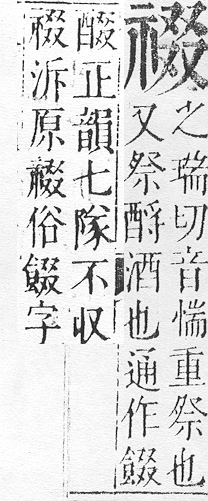 䄌
之瑞切音惴重祭也
又祭酹酒也通作餟
醊正韻七隊不収
䄌泝原䄌俗餟字